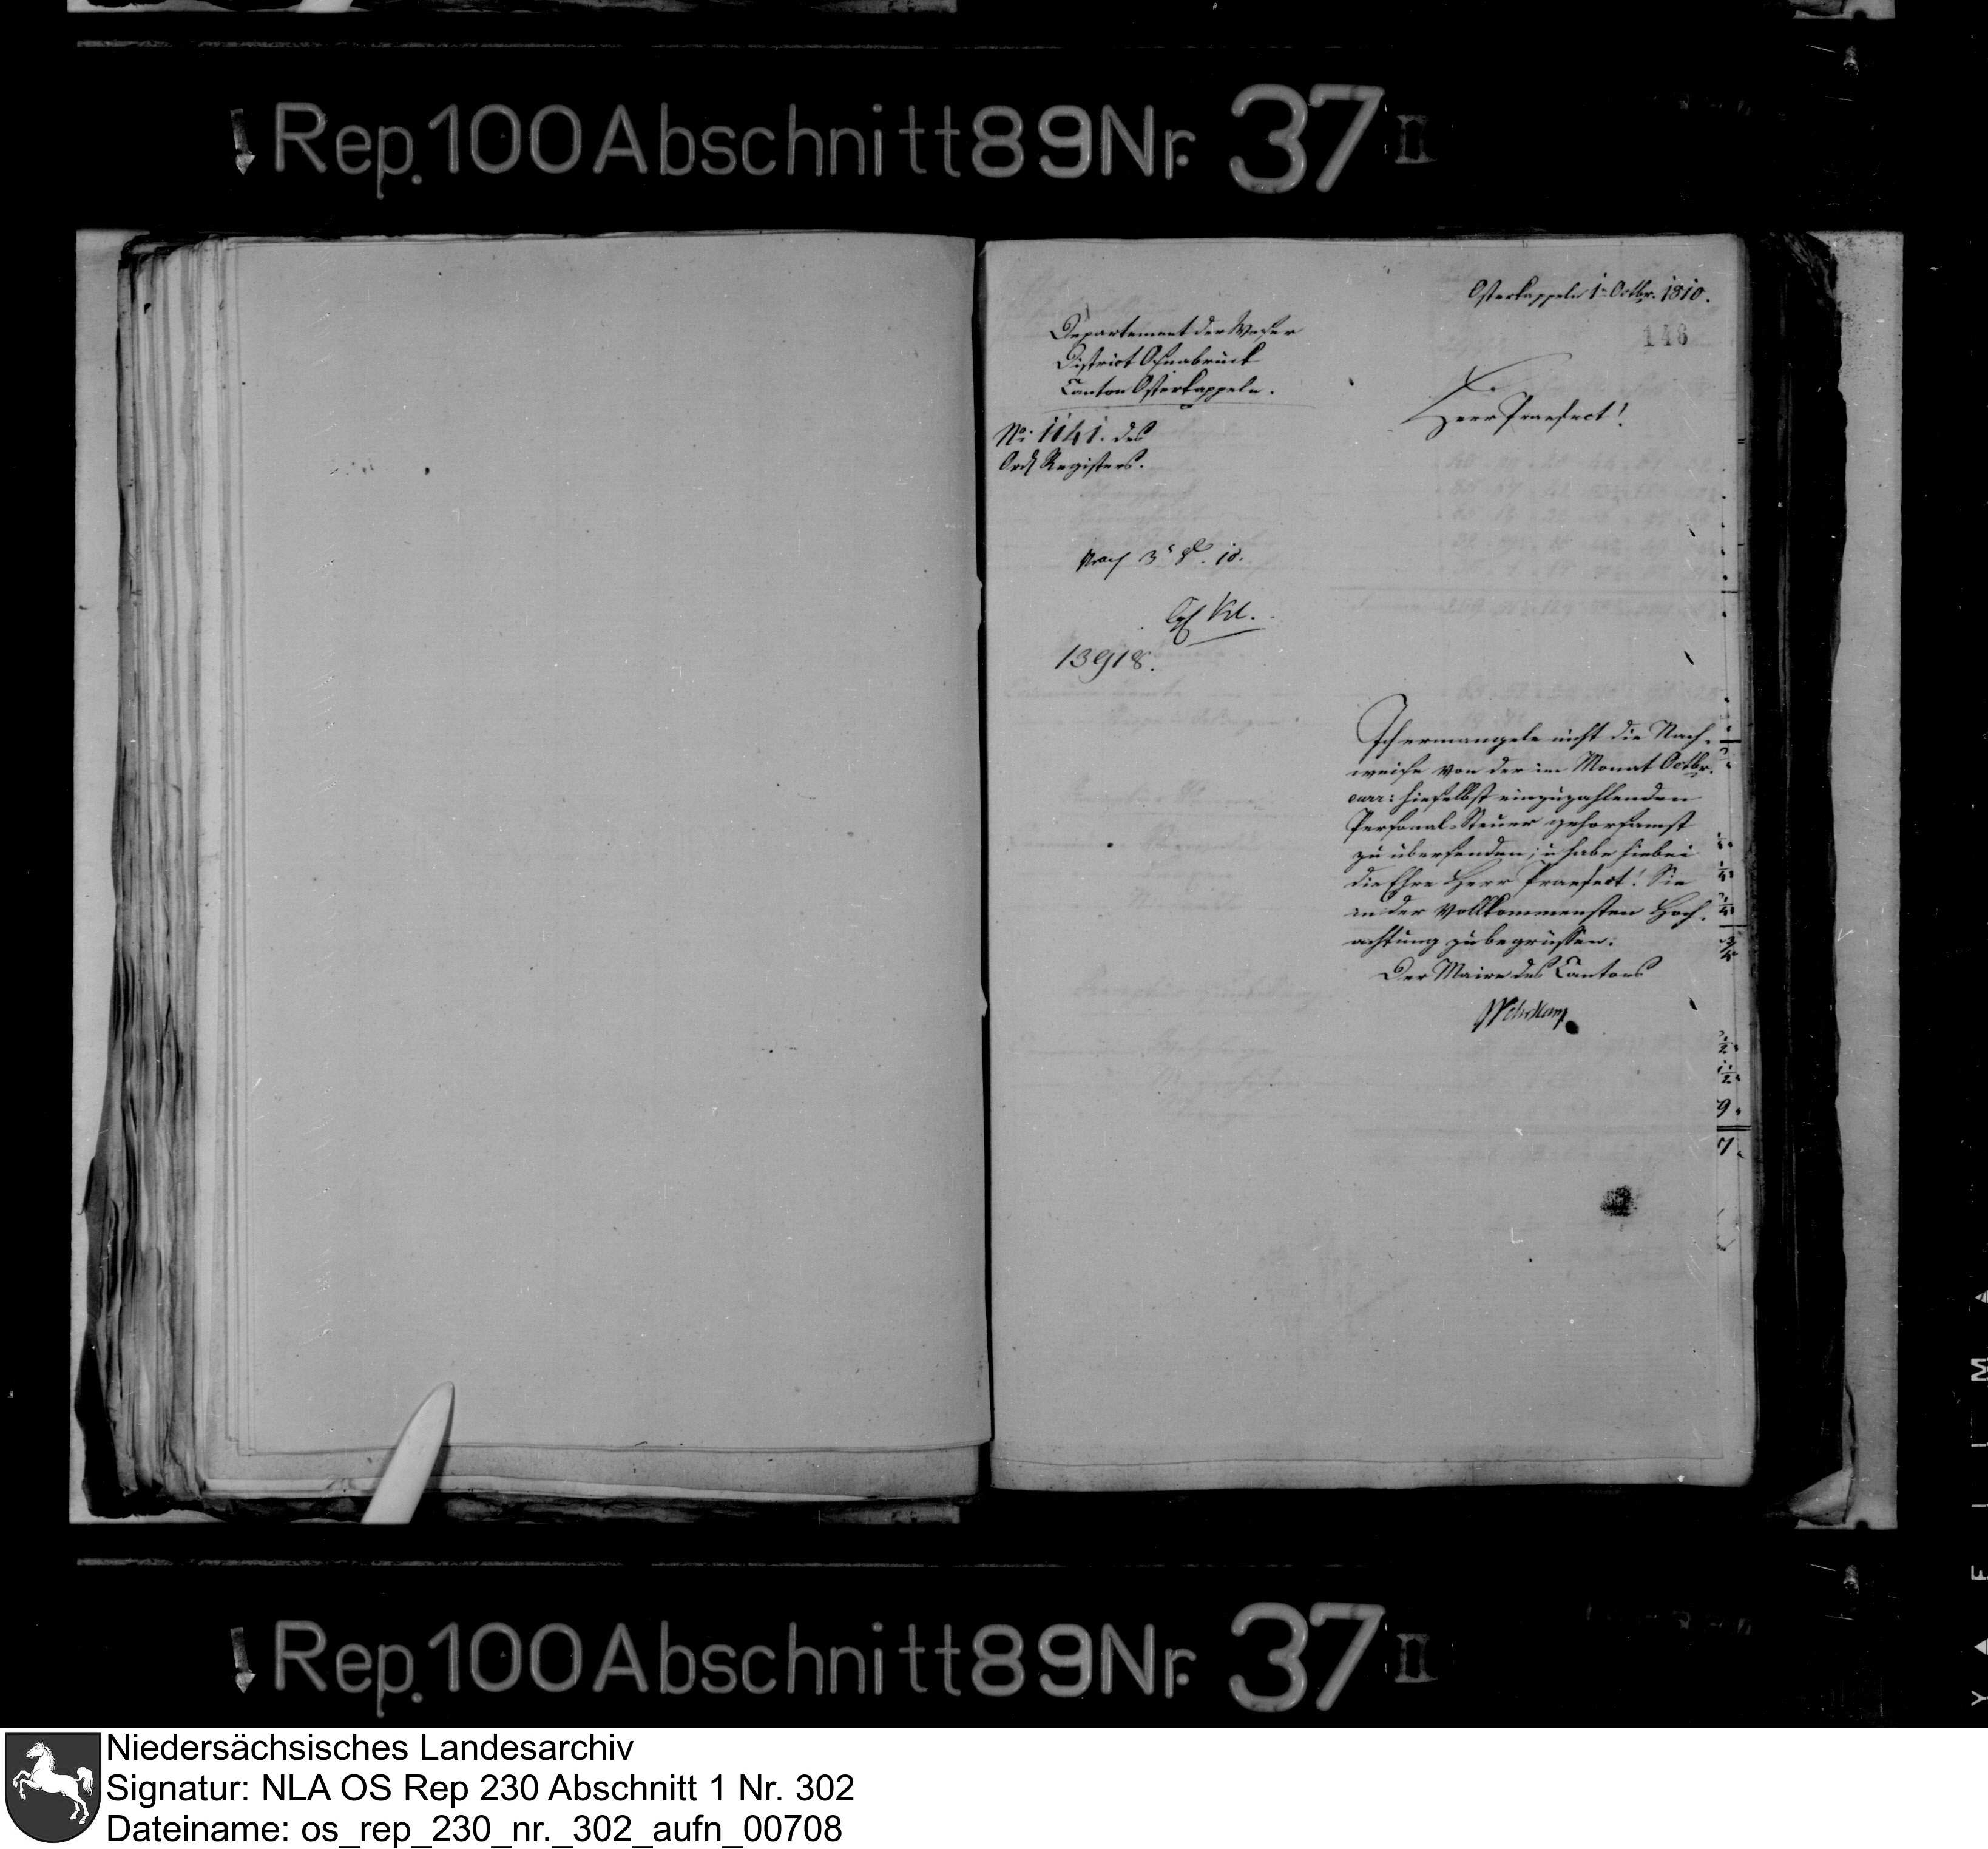 Rep. 100 Abschnitt 89 Nr. 37 II
Osterkappeln 1n Octbr. 1810.
146
Departement der Weser
District Osnabrück
Canton Osterkappeln.
No. 1141. des
Registers.
Herr Praefect!
13918.
Ich ermangele nicht die Nach-
weise von der im Monat Octbr.
curr: hieselbst einzuzahlenden
Personal-Steuer gehorsamst
zu übersenden; u habe hiebei
die Ehre Herr Praefect! Sie
in der Vollkommensten Hoch-
achtung zu begrüssen.
Der Maire des Cantons
Rep. 100 Abschnitt 89 Nr. 37 II
Niedersächsisches Landesarchiv
Signatur: NLA OS Rep 230 Abschnitt 1 Nr. 302
Dateiname: os_rep_230_nr._302_aufn_00708